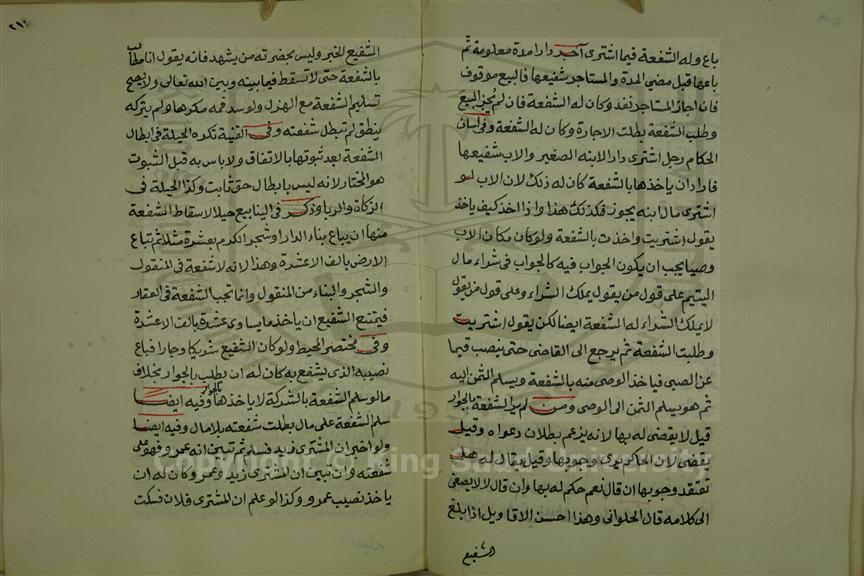 باع وله الشفعة فيما اشترى آجر دارا مدة معلومة ثم
باعها قبل مضي المدة والمستاجر شفيعها فالبيع موقوف
فان اجاز المستاجر نفذ وكان له الشفعة فان لم يجز البيع
وطلب الشفعة بطلت الاجارة وكان له الشفعة وفي لسان
الحكام رجل اشترى دار الابنه الصغير والاب شفيعها
فاراد ان ياخذها بالشفعة كان له ذلك لان الاب لو
اشترى مال ابنه يجوز فكذلك هذا واذا اخذ كيف ياخذ
يقول اشتريت واخذت بالشفعة ولو كان مكان الاب
وصيا يجب ان يكون الجواب فيه كالجواب في شراء مال
اليتيم على قول من يقول يملك الشراء وعلى قول من يقول
لا يملك الشراء له الشفعة ايضا لكن يقول اشتريت
وطلبت الشفعة ثم يرجع الى القاضي حتى ينصب قيما
عن الصبي فياخذ الوصي منه بالشفعة ويسلم الثمن اليه
ثم هو يسلم الثمن الى الوصي ومن لم ير الشفعة بالجوار
قيل لا يقضى له بها لانه يزعم بطلان دعواه وقيل
يقضى لان الحاكم يرى وجوبها وقيل يقال له هل
تعتقد وجوبها ان قال نعم حكم له بها وان قال لا لا يصغى
الى كلامه قال الحلواني وهذا احسن الاقاويل اذا بلغ
الشفيع
الشفيع الخبر وليس بحضرته من يشهد فانه يقول انا مطالب
بالشفعة حتى لا تسقط فيما بينه وبين الله تعالى ولا يصح
تسليم الشفعة مع الهزل ولو سد فمه مكرها ولم يتركه
ينطق لم تبطل شفعته وفي القنية تكره الحيلة في ابطال
الشفعة بعد ثبوتها بالاتفاق ولا باس به قبل الثبوت
هو المختار لانه ليس بابطال حق ثابت وكذا الحيلة في
الزكاة والربا وذكر في الينابيع حيلا لاسقاط الشفعة
منها ان يباع بناء الدار او شجر الكرم بعشرة مثلا ثم تباع
الارض بالف الا عشرة وهذا لانه لا شفعة في المنقول
والشجر والبناء من المنقول وانما تجب الشفعة في العقار
فيمتنع الشفيع ان ياخذ ما يساوي عشرة بالف الا عشرة
وفي مختصر المحيط ولو كان الشفيع شريكا وجارا فباع
نصيبه الذي يشفع به كان له ان يطلب بالجوار بخلاف
ما لو سلم الشفعة بالشركة لا ياخذها بالجوار وفيه ايضا
سلم الشفعة على مال بطلت شفعته بلا مال وفيه ايضا
ولو اخبر ان المشتري زيد فسلم ثم تبين انه عمرو فهو على
شفعته وان تبين ان المشتري زيد وعمرو كان له ان
ياخذ نصيب عمرو وكذا لو علم ان المشتري فلان فسكت
Copyright © King Saud University
1957